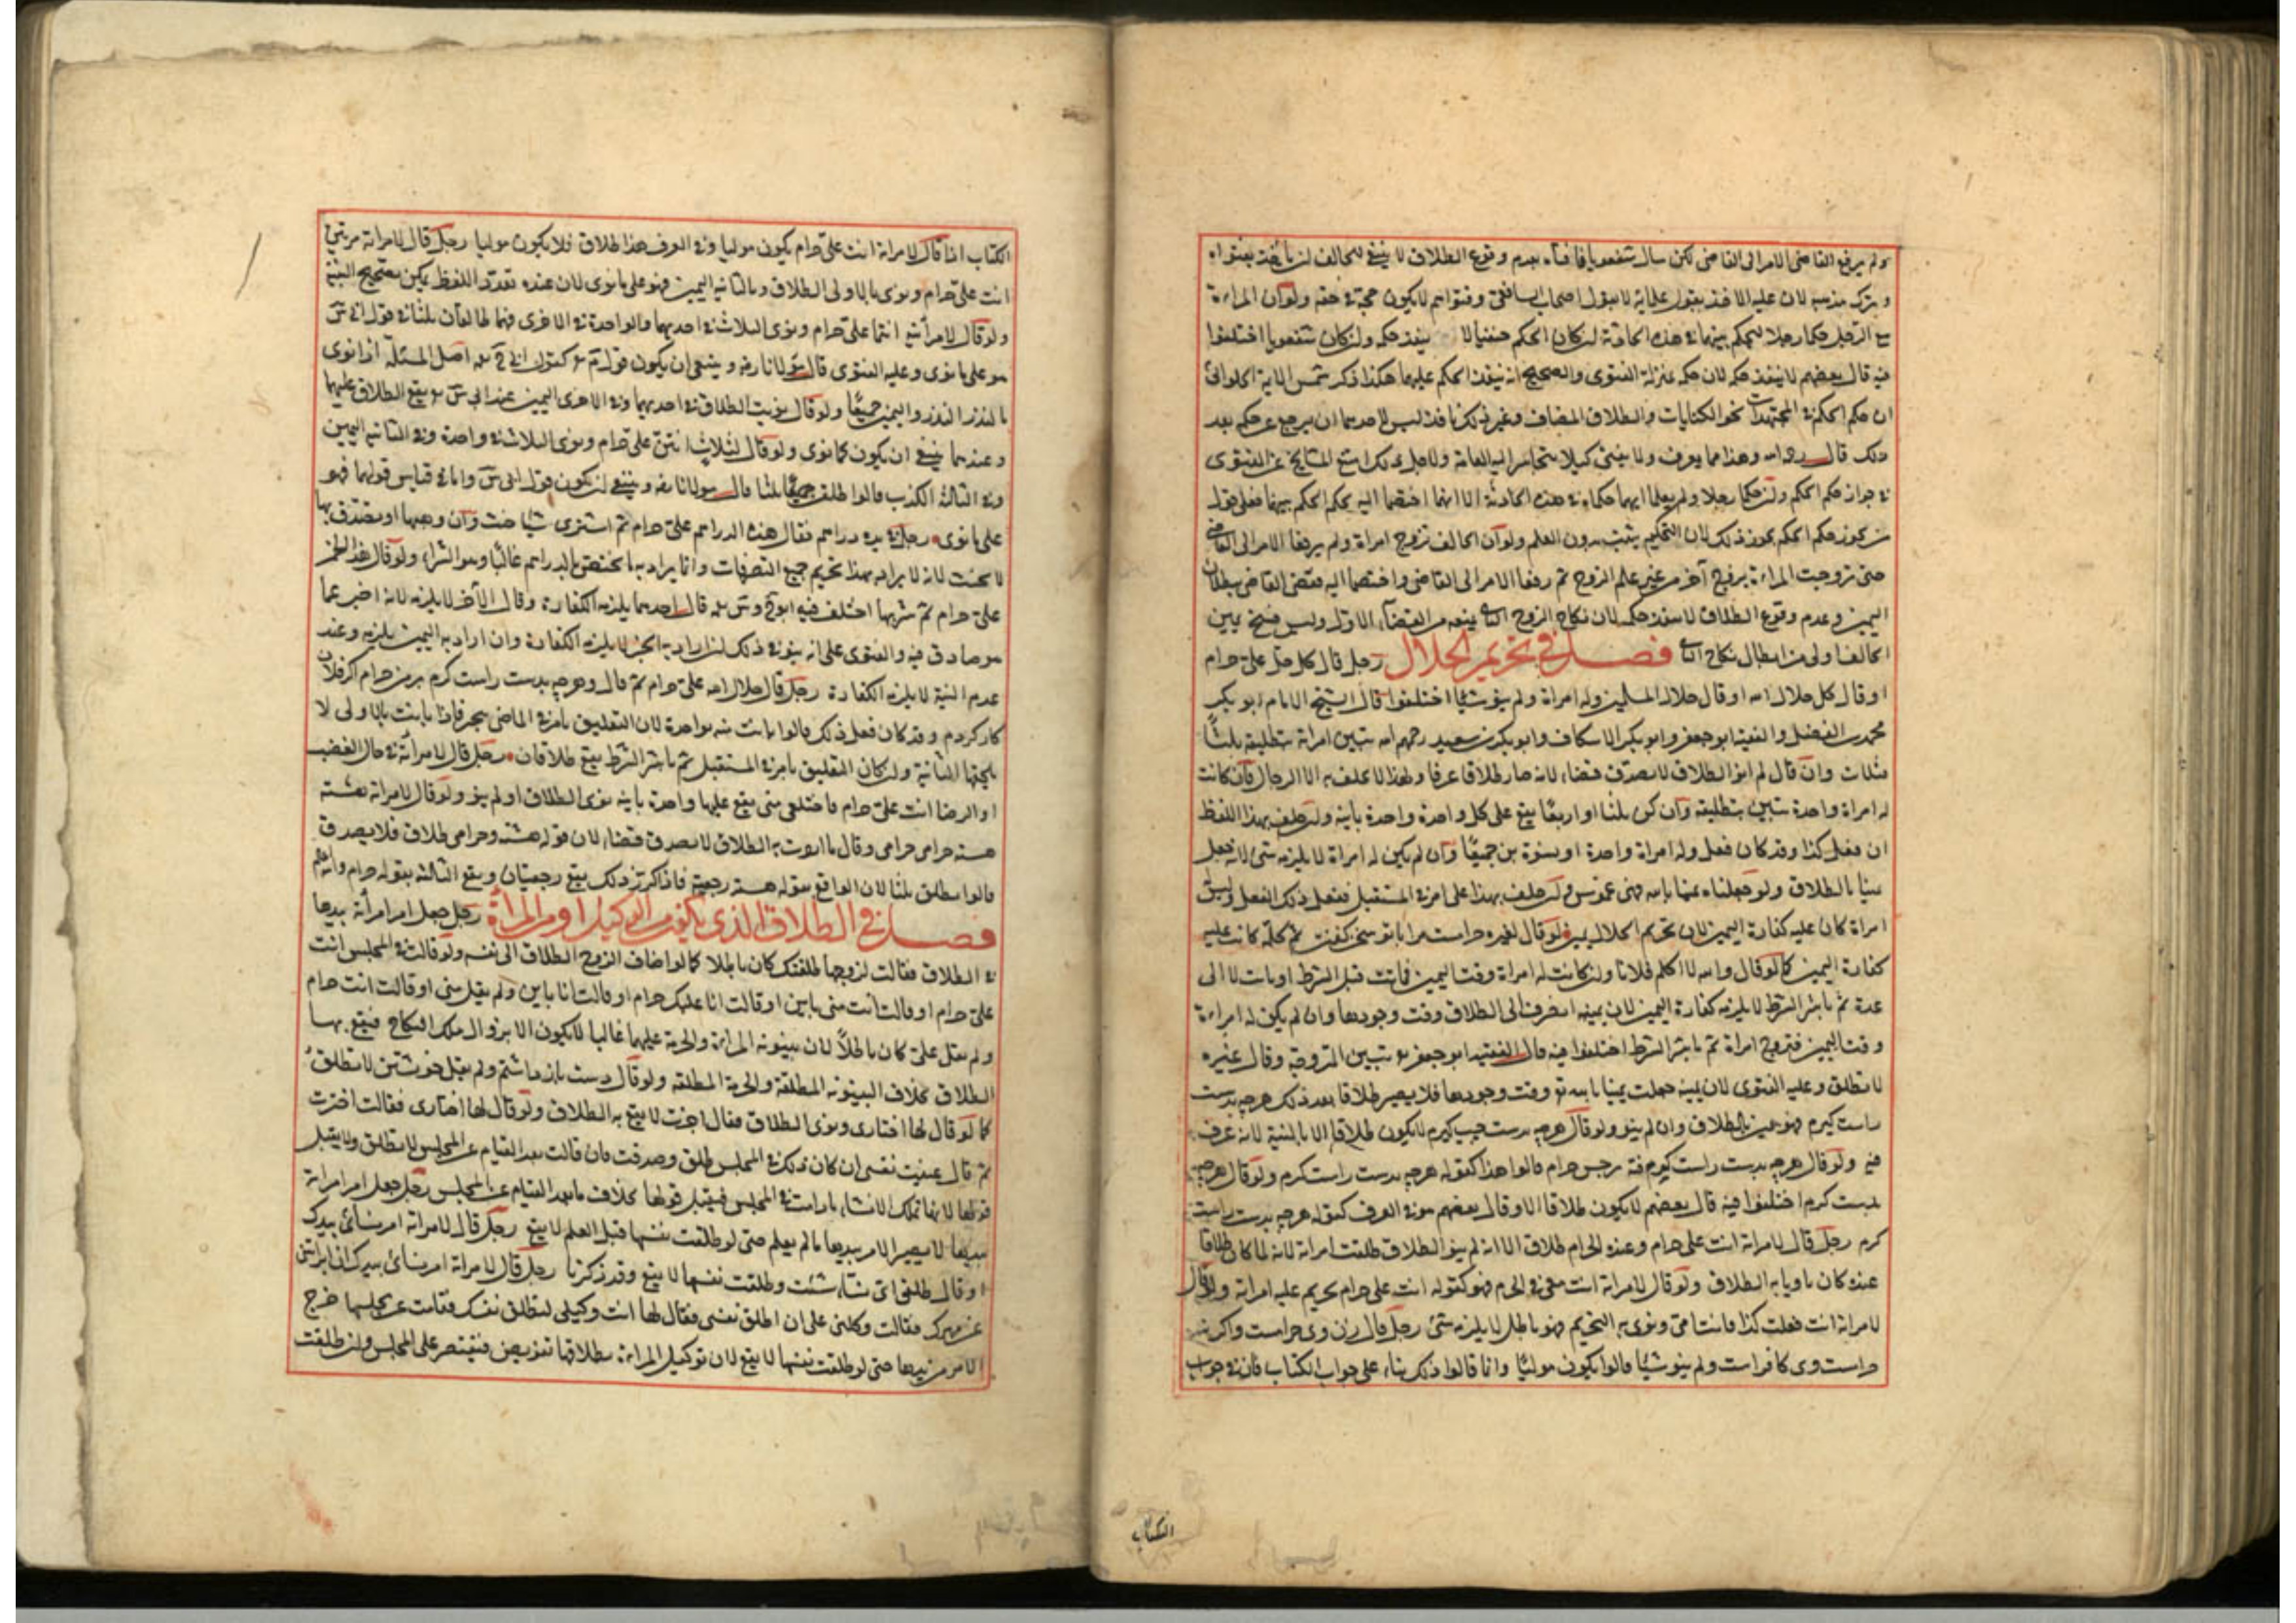 ولم يرفع القاضى الامر الى القاضى لكن سال شفعويا فافتاه بعدم وقوع الطلاق لا ينبغى للحالف ان ياخذ بفتواه
ويترك مذهبه لان عليه الاخذ بقول علمائه لا بقول اصحاب الشافعى وفتواهم لا يكون حجة فى حقه ولو ان المراءة
مع الرجل حكما رجلا ليحكم بينهما فى هذه الحادثة ان كان الحكم حنفيا لا ينفذ حكمه وان كان شفعويا اختلفوا
فيه قال بعضهم لا ينفذ حكمه لان حكمه بمنزلة الفتوى والصحيح انه ينفذ الحكم عليهما هكذا ذكر شمس الايمة الحلوائى
ان حكم الحكم فى المجتهدات نحو الكنايات والطلاق المضاف وغير ذلك نافذ ليس لاحدهما ان يرجع عن حكمه بعد
ذلك قال رحمه الله وهذا مما يعرف ولا يفتى كيلا يتجاسر اليه العامة ولاجل ذلك امتنع المشايخ عن الفتوى
فى جواز حكم الحكم وان حكما رجلا ولم يعلما ايهما حكماه فى هذه الحادثة الا انهما اختصما اليه فحكم الحكم بينهما فعلى قول
من يجوز حكم الحكم يجوز ذلك لان التحكيم يثبت بدون العلم ولو ان الحالف تزوج امراة ولم يرفعا الامر الى القاضى
حتى تزوجت المراءة بزوج آخر من غير علم الزوج ثم رفعا الامر الى القاضى واختصما اليه فقضى القاضى ببطلان
اليمين وعدم وقوع الطلاق لا ينفذ حكمه لان نكاح الزوج الثانى يمنعه من القضاء الاول وليس فسخ يمين
الحالف اولى من ابطال نكاح الثانى فصل فى تحريم الحلال رجل قال كل حل على حرام
او قال كل حلال الله او قال حلال المسلمين وله امراة ولم ينو شيئا اختلفوا قال الشيخ الامام ابو بكر
محمد بن الفضل والفقيه ابو جعفر وابو بكر الاسكاف وابو بكر بن سعيد رحمهم الله تبين امراته بتطليقة ثلثا
فثلاث وان قال لم انو الطلاق لا يصدق قضاء لانه صار طلاقا عرفا ولهذا لا يحلف به الا الرجال فان كانت
له امراة واحدة تبين بتطليقة وان كن ثلثا او اربعا يقع على كل واحدة واحدة باينة وان حلف بهذا اللفظ
ان فعل كذا وقد كان فعل وله امراة واحدة او نسوة بن جميعا وان لم يكن له امراة لا يلزمه شئ لانه جعل
يمينا بالطلاق ولو جعلناه يمينا بالله فهى غموس وان حلف بهذا على امر فى المستقبل ففعل ذلك الفعل وليس له
امراة كان عليه كفارة اليمين لان تحريم الحلال يمين ولو قال لغيره حرامست مرا باتو سخن كفتن ثم كلمه كانت عليه
كفارة اليمين كما لو قال والله لا اكلم فلانا وان كانت له امراة وقت اليمين فماتت قبل الشرط او بانت لا الى
عدة ثم باشر الشرط لا يلزمه كفارة اليمين لان يمينه انصرف الى الطلاق وقت وجودها وان لم يكن له امراءة
وقت اليمين فتزوج امراة ثم باشر الشرط اختلفوا فيه قال الفقيه ابو جعفر تبين المتزوجة وقال غيره
لا تطلق وعليه الفتوى لان يمينه جعلت يمينا بالله وقت وجودها فلا يصير طلاقا بعد ذلك هرجه بدست
راست كيرم فهو يمين بالطلاق وان لم ينو ولو قال هرجه بدست جب كيرم لا يكون طلاقا الا بالنية لانه لا عرف
فيه ولو قال هرجه بدست راست كيرم فهو برمن حرام قالوا هذا كقوله هرجه بدست راست كيرم ولو قال هرجه
بدست كيرم اختلفوا فيه قال بعضهم لا يكون طلاقا الا وقال بعضهم هو فى العرف كقوله هرجه بدست راست
كيرم رجل قال لامراته انت على حرام وعنده الحرام طلاق الا انه لم ينو الطلاق طلقت امراته لانه لما كان طلاقا
عنده كان ناويا به الطلاق ولو قال لامراته انت معى فى الحرام فهو كقوله انت على حرام يحرم عليه امراته ولو قال
لامراته انت فعلت كذا فانت امى ونوى به التحريم فهو باطل لا يلزمه شئ رجل قال زن وى حرامست واكر
حراست وى كافراست ولم ينو شيئا قالوا يكون موليا وانما قالوا ذلك بناء على جواب الكتاب فان فى جواب
الكتاب
الكتاب اذا قال لامراته انت على حرام يكون موليا وفى العرف هذا طلاق فلا يكون موليا رجل قال لامراته مرتين
انت على حرام ونوى بالاولى الطلاق وبالثانيه اليمين فهو على ما نوى لان عنده تعدد اللفظ يمكن تصحيح النية
ولو قال لامرأتيه انتما على حرام ونوى الثلاث فى احديهما والواحدة فى الاخرى فهما طالقان ثلثا فى قول ابى س
هو على ما نوى وعليه الفتوى قال مولانا رضه وينبغى ان يكون قول م كقول ابى ح اصل المسئلة اذا نوى
بالنذر النذر واليمين جميعا ولو قال نويت الطلاق فى احديهما وفى الاخرى اليمين عند ابى س يقع الطلاق عليهما
وعندهما ينبغى ان يكون كما نوى ولو قال لثلاث انتن على حرام ونوى الثلاث فى واحدة وفى الثانيه اليمين
وفى الثالثة الكذب قالوا طلقن جميعا ثلثا قال مولانا رضه وينبغى ان يكون قول ابى س واما فى قياس قولهما فهو
على ما نوى رجل فى يده دراهم فقال هذه الدراهم على حرام ثم اشترى شيئا حنث وان وهبها او تصدق بها
لا يحنث لانه لا يراد بهذا تحريم جميع التصرفات وانما يراد به ما يختص بالدراهم غالبا وهو الشراء ولو قال هذا الخمر
على حرام ثم شربها اختلف فيه ابو ح وس قال احدهما يلزمه الكفارة وقال الآخر لا يلزمه لانه اخبر عما
هو صادق فيه والفتوى على انه ينوى فى ذلك ان اراد به الخبر لا يلزمه الكفارة وان اراد به اليمين يلزمه وعند
عدم النية لا يلزمه الكفارة رجل قال حلال الله على حرام ثم قال وهرجه بدست راست كيرم برمن حرام اكر فلان
كار كردم وقد كان فعل ذلك قالوا بانت منه بواحدة لان التعليق بامر فى الماضى تنجيز فاذا بانت بالاولى لا
يلحقها الثانية وان كان التعليق بامر فى المستقبل ثم باشر الشرط يقع طلاقان رجل قال لامرأته فى حال الغضب
او الرضا انت على حرام فاختلعى منى يقع عليها واحدة باينة نوى الطلاق او لم ينو ولو قال لامراته هشته
هشته حرامى حرامى وقال ما اردت به الطلاق لا يصدق قضاء لان قوله هشته وحرامى طلاق فلا يصدق
قالوا يطلق ثلثا لان الواقع بقوله هشته رجعية فاذا كرر ذلك يقع رجعيتان ويقع الثالثة بقوله حرام والله اعلم
فصل فى الطلاق الذى يكون من الوكيل او من المرأة رجل جعل امر امرأته بيدها
فى الطلاق فقالت لزوجها طلقتك كان باطلا كما لو اضاف الزوج الطلاق الى نفسه ولو قالت فى المجلس انت
على حرام او قالت انت منى باين او قالت انا عليك حرام او قالت انا باين ولم يقل منى او قالت انت حرام
ولم يقل على كان باطلا لان بينونة المراءة والحرمة عليهما غالبا لا يكون الا بزوال ملك النكاح فيقع بهما
الطلاق بخلاف البينونة المطلقة والحرمة المطلقة ولو قال دست باز داشتم ولم يقل خويشتن لا تطلق
كما لو قال لها اختارى ونوى الطلاق فقال اخترت لا يقع به الطلاق ولو قال لها اختارى فقالت اخترت
ثم قال عنيت نفسى ان كان ذلك فى المجلس طلق وصدقت فان قالت بعد القيام عن المجلس لا تطلق ولا يقبل
قولها لانها تملك الانشاء ما دامت فى المجلس فيقبل قولها بخلاف ما بعد القيام عن المجلس رجل جعل امر امراته
بيدها لا يصير الامر بيدها ما لم يعلم حتى لو طلقت نفسها قبل العلم لا يقع رجل قال لامراته امر نسائى بيدك
او قال طلقى اى نسائى شئت وطلقت نفسها لا يقع وقد ذكرنا رجل قال لامراة امر نسائى بيدك ان ابراتنى
عن مهرك فقالت وكلنى على ان اطلق نفسى فقال لها انت وكيلى لتطلق نفسك فقامت عن مجلسها خرج
الامر من يدها حتى لو طلقت نفسها لا يقع لان توكيل المراءة بطلاقها تفويض فيقتصر على المجلس وان طلقت